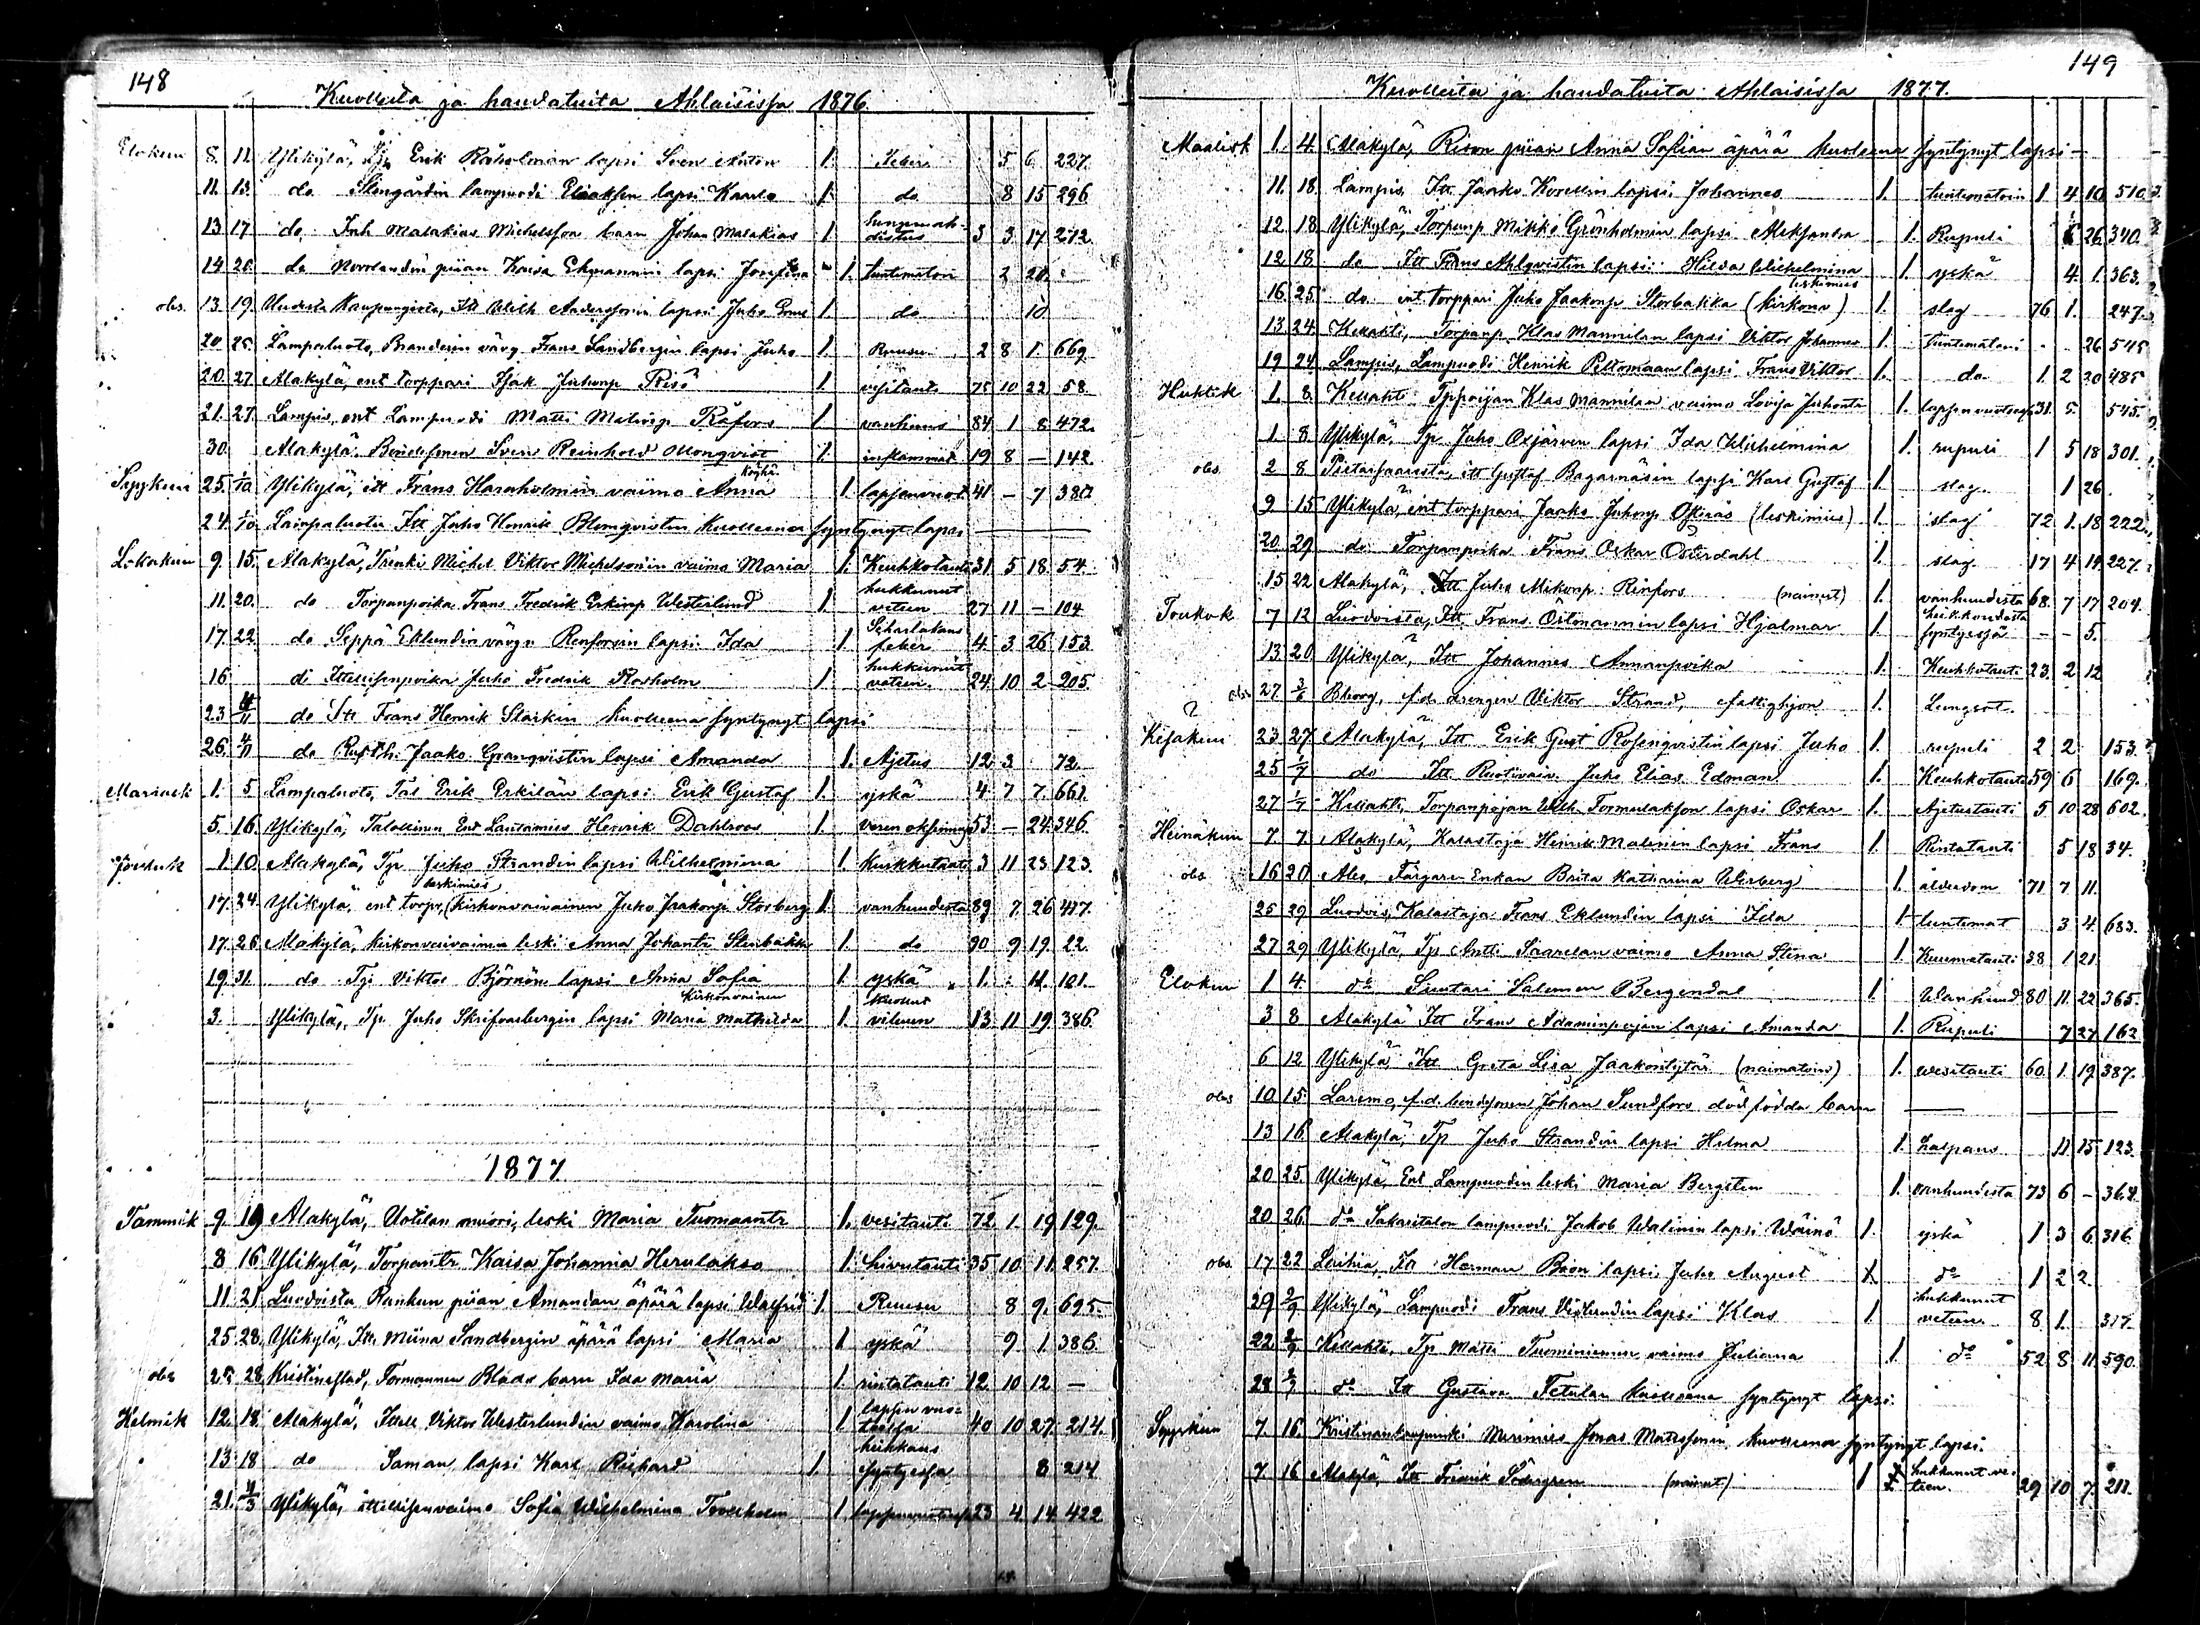 148
Kuolleita ja haudatuita Ahlaisissa 1876.
Elokuu 8. 11. Ylikylä, Erik Råholman lapsi Sven Anton 1. Feber 5 6 227.
11. 13. do Stengårdin lampuodi Eliaksen lapsi Kaarlo 1. do 8 15 296
13 17 do Inh Malakias Michelsson barn Johan Malakias 1 3 3 17 272.
14 20. do Norrlandin piian Kaisa Ekmannin lapsi Josefina 1. tuntematon 2 20.
obs. 13. 19. Uudesta Kaupungista, Itt Wilh Anderssonin lapsi Juho 1. do 10
20 25 Lampaluoto, Branderin vävy Frans Sandbergin lapsi Juho 1. Ruusu 2 8 1 669
20. 27 Alakylä, ent torppari Isak Juhonp Risö 1 75 10 22 58.
21. 27. Lampis, ent Lampuodi Matti Matinp Råfors 1 vanhuus 84 1 8 472.
30. Alakylä, Bondesonen Sven Reinhold Monqvist 1. inflammat 19 8 — 142.
Syyskuu 25. 1/10 Ylikylä, itt Frans Haraholmin vaimo Anna 1 lapsenvuot 41 — 7 380
24. 1/10. Lampaluoto Itt Juho Henrik Blomqvistin kuolleena syntynyt lapsi
Lokakuu 9. 15. Alakylä, Trenki Michel Viktor Michelsonin vaimo Maria 1. Keuhkotauti 31 5 18 54.
11. 20. do Torpanpoika Frans Fredrik Erkinp Westerlund 1 hukkunut veteen 27 11 — 104
17. 22. do Seppä Eklundin vävyn Renforsin lapsi Ida 1 Scharlakans feber 4 3 26 153.
16. do Ittellisenpoika Juho Fredrik Roxholm 1. hukkunut veteen. 24 10 2 205.
23. 4/11 do Itt Frans Henrik Starkin kuolleena syntynyt lapsi
26. 4/11 do Jaako Granqvistin lapsi Amanda 1. Ajetus 12 3 72.
Marrask 1. 5 Lampaluoto, Tal Erik Erkilän lapsi Erik Gustaf 1. yskä 4 7 7. 661.
5. 16 Ylikylä, Talollinen Ent Lautamies Henrik Dahlroos 1. 53 — 24 346.
Jouluk 1. 10. Alakylä, Tp Juho Strandin lapsi Wilhelmina 1. Kurkkutauti 3 11 23 123.
leskimies
17. 24. Ylikylä, ent torp. (kirkonvaivainen Juho Jaakonp Storberg 1. vanhuudesta 89 7 26 417.
17. 26 Alakylä, kirkonvaivainen leski Anna Johantr Stenbäkk 1. do 90 9 19. 22.
19. 31. do Tp Viktor Björnön lapsi Anna Sofia 1 yskä 1. 11. 101.
kirkonvainen
3. Ylikylä, Tp Juho Skrifvarsbergin lapsi Maria Mathilda 1. 13 11 19. 386.
1877
Tammik 9. 19 Alakylä, Uotilan muori, leski Maria Tuomaantr 1. vesitauti 72. 1. 19 129.
8 16. Ylikylä, Torpantr Kaisa Johanna Herulakso 1. hivutauti 35 10. 11. 257.
11. 21. Luodoista Runkun piian Amandan äpärä lapsi Walfrid 1. Ruusu 8 9. 695.
25. 28. Ylikylä, Itt. Miina Sandbergin äpärä lapsi Maria 1 yskä 9 1. 386.
obs 25. 28. Kristinestad, Formannen Blads barn Ida Maria 1 rintatauti 12 10 12 —
Helmik 12. 18. Alakylä, Ittell Viktor Westerlundin vaimo Karolina 1. 40 10 27. 214.
13. 18 do Saman lapsi Karl Rickard 1. heikkous syntyessä 8 214
21. 4/3 Ylikylä, ittellisenvaimo Sofia Wilhelmina Toverholm 1 23 4. 14. 422.
149
Kuolleita ja haudatuita Ahlaisissa 1877.
Maalisk 1. 4. Alakylä, Rison piian Anna Sofian äpärä kuolleena syntynyt lapsi —
11. 18. Lampis, Itt Jaako Korellin lapsi Johannes 1. tuntematoin 1 4 10 510.
12 18 Ylikylä, Torpanp Mikko Grönholmin lapsi Aleksandra 1. Rupuli 26 340.
12 18 do Itt Frans Ahlqvistin lapsi Hilda Wilhelmina 1. yskä 4. 1. 363.
leskimies
16. 25. do ent torppari Juho Jaakonp Storbakka (kirkonv) 1. slag 76 1. 247.
13. 24. Kellahti, Torpanp Klas Mannilan lapsi Viktor Johannes 1. Tuntematoin 26 545
19 24 Lampis, Lampuodi Henrik Peltomaan lapsi Frans Viktor 1. do. 1. 2 20 485
Huhtik 1. 8. Kellahti Tppoijan Klas Mannilan vaimo Lovisa Juhontr 1. 31 5. 545.
1. 8. Ylikylä, Tp Juho Oxjärven lapsi Ida Wilhelmina 1. rupuli 1 5 18 301.
obs 2 8 Pietarsaaresta, itt Gustaf Bagarnäsin lapsi Karl Gustaf 1. slag. 1 26.
9 15 Ylikylä, ent torppari Jaako Juhonp (leskimies) 1. slag 72 1. 18 222.
20. 29 do Torpanpoika Frans Oskar Österdahl 1. slag 17 4 14 227.
15 22 Alakylä, Itt Juho Mikonp Rinfors (nainut) 1. vanhuudesta 68. 7 17 204.
Toukok 7 12 Luodoista, Itt. Frans Östmannin lapsi Hjalmar 1. heikkoudesta syntyessä — — 5.
13. 20 Ylikylä, Itt Johannes Annanpoika 1. Keuhkotauti 23. 2 12
obs 27. 3/6 Bborg, f.d. drengen Viktor Strand, fattighjon 1. Lungsot.
Kesäkuu 23 27 Alakylä, Itt Erik Gust Rosenqvistin lapsi Juho 1. rupuli 2 2 153.
25 1/7 do Itt Ruotivaiv. Juho Elias Edman 1. Keuhkotauti 59 6 169.
27 1/7 Kellahti, Torpanpojan Wilh Formulakson lapsi Oskar 1. Ajetustauti 5 10 28 602.
Heinäkuu 7. 7. Alakylä, Kalastaja Heinrik Malinin lapsi Frans 1. Rintatauti 5 18 34.
obs 16 20 Abo, Färgare Enkan Brita Katharina Werberg 1. ålderdom 71 7 11.
25 29 Luodois, Kalastaja Frans Eklundin lapsi Ida 1. tuntemat 3 4. 683.
27 29 Ylikylä, Tp Antti Saarelan vaimo Anna Stina 1 Kuumetauti 38 1 21
Elokuu 1 4. do Suutari Salomon Bergendal 1. Wanhuud 80 11. 22 365.
3 8 Alakylä Itt Frans Adaminpojan lapsi Amanda 1. Rupuli 7 27 162
6 12 Ylikylä Itt Greta Lisa Jaakontytär (naimatoin) 1. vesitauti 60. 1. 19 387.
obs 10 15. Laremo, f.d. bondsonen Johan Sundfors död födda barn
13 16 Alakylä, Tp Juho Strandin lapsi Hilma 1. 11 15 123.
20 25. Ylikylä, Ent Lampuodin leski Maria Bergsten 1. Vanhuudesta 73 6 — 364.
20 26 do lampuodi Jakob Walinin lapsi Wäinö 1. yskä 1 3 6 316.
obs. 17 22 Laihia, Itt Herman Boon lapsi Juho August do 1 2 2.
29 2/9 Ylikylä, Lampuodi Frans Vidlundin lapsi Klas 1 hukkunut veteen. 8 1. 317.
22 2/9 Kellahti, Tp Matti Tuominiemen vaimo Juliana 1 do 52 8 11 590.
28 do Itt Gustava Tetulan kuolleena syntynyt lapsi.
Syyskuu 7. 16. Kristinankaupunki Merimies Jonas Matssonin kuolleena syntynyt lapsi.
7. 16 Alakylä, Itt Fredrik Södergren (nainut) 1 hukkunut veteen. 29 10 7. 211.